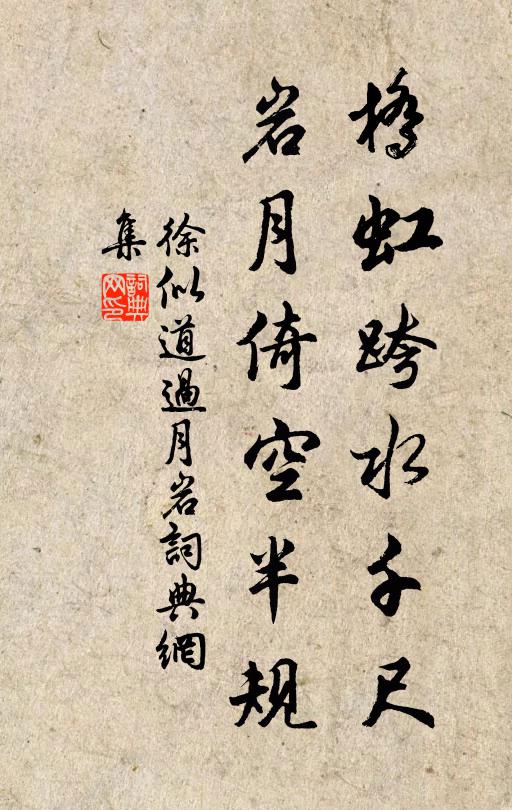 橋虹跨水千尺
岩月倚空半規
徐似道過月岩詞典網
集
詞典
网印